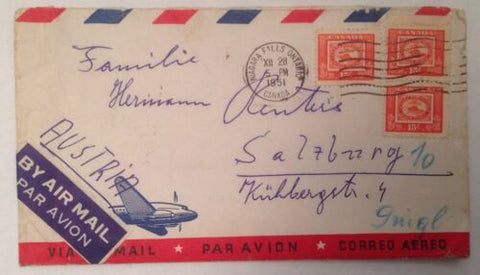 Familie
Hermann
NIAGARA FALLS ONTARIO
XII 28
5 PM
1951
CANADA
CANADA
CANADA
CANADA
15¢
15¢
15¢
AUSTRIA
Salzburg 10
Kühbergstr. 4
Gnigl
BY AIR MAIL
PAR AVION
VIA MAIL ★ PAR AVION ★ CORREO AEREO